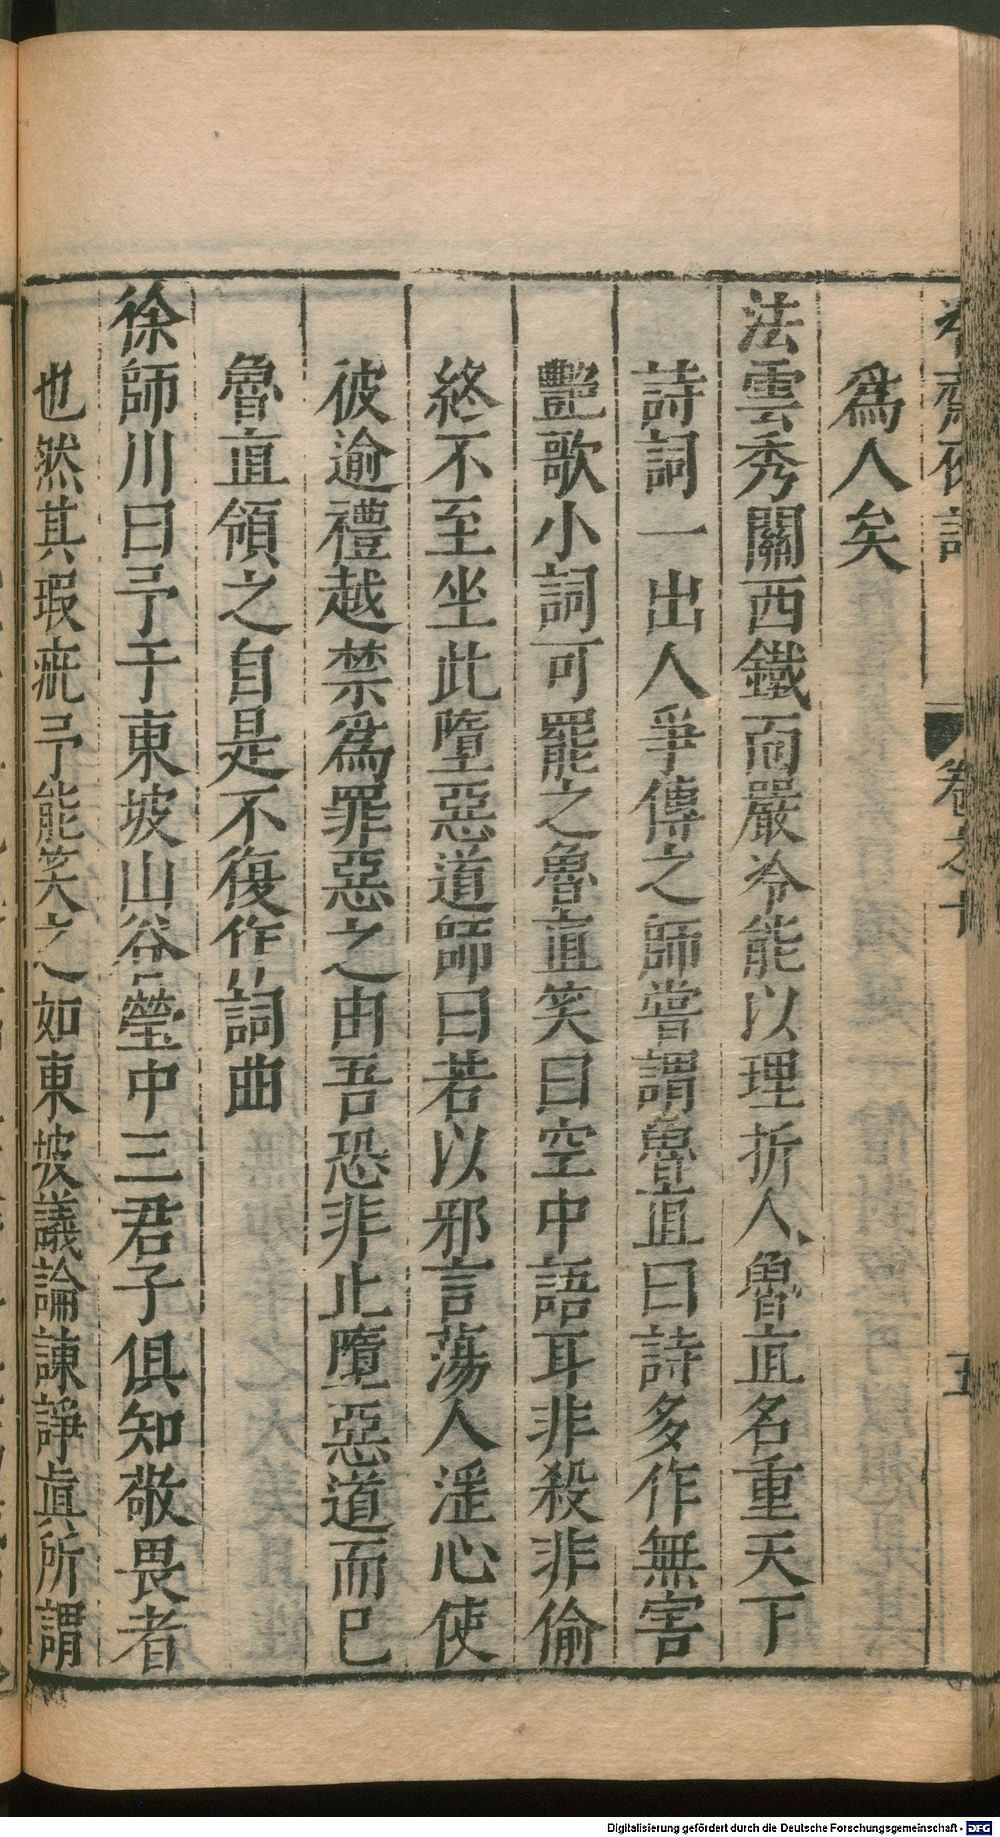 卷之十
五
爲人矣
法雲秀關西鐵面嚴冷能以理折人魯直名重天下
詩詞一出人爭傳之師嘗謂魯直曰詩多作無害
艷歌小詞可罷之魯直笑曰空中語耳非殺非偷
終不至坐此墮惡道師曰若以邪言蕩人淫心使
彼逾禮越禁爲罪惡之由吾恐非止墮惡道而已
魯直領之自是不復作詞曲
徐師川曰予于東坡山谷瑩中三君子俱知敬畏者
也然其瑕疵予能笑之如東坡議論諫諍眞所謂
Digitalisierung gefördert durch die Deutsche Forschungsgemeinschaft - DFG